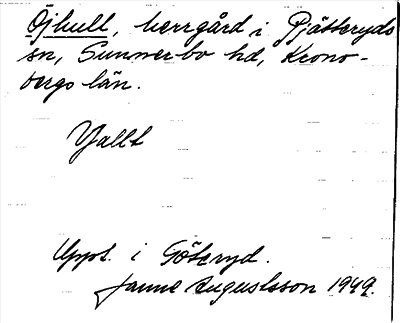 Öjhult, herrgård i Pjätteryds
sn, Sunnerbo hd, Krono-
bergs län.
Uppt. i Göteryd.
Janne Augustsson 1949.